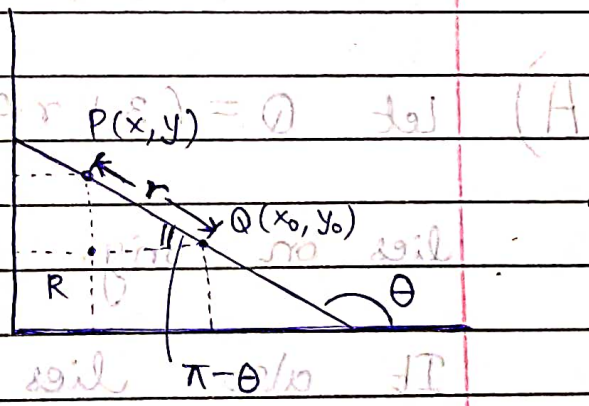 P(x,y)
r
Q(x₀, y₀)
R
θ
π-θ